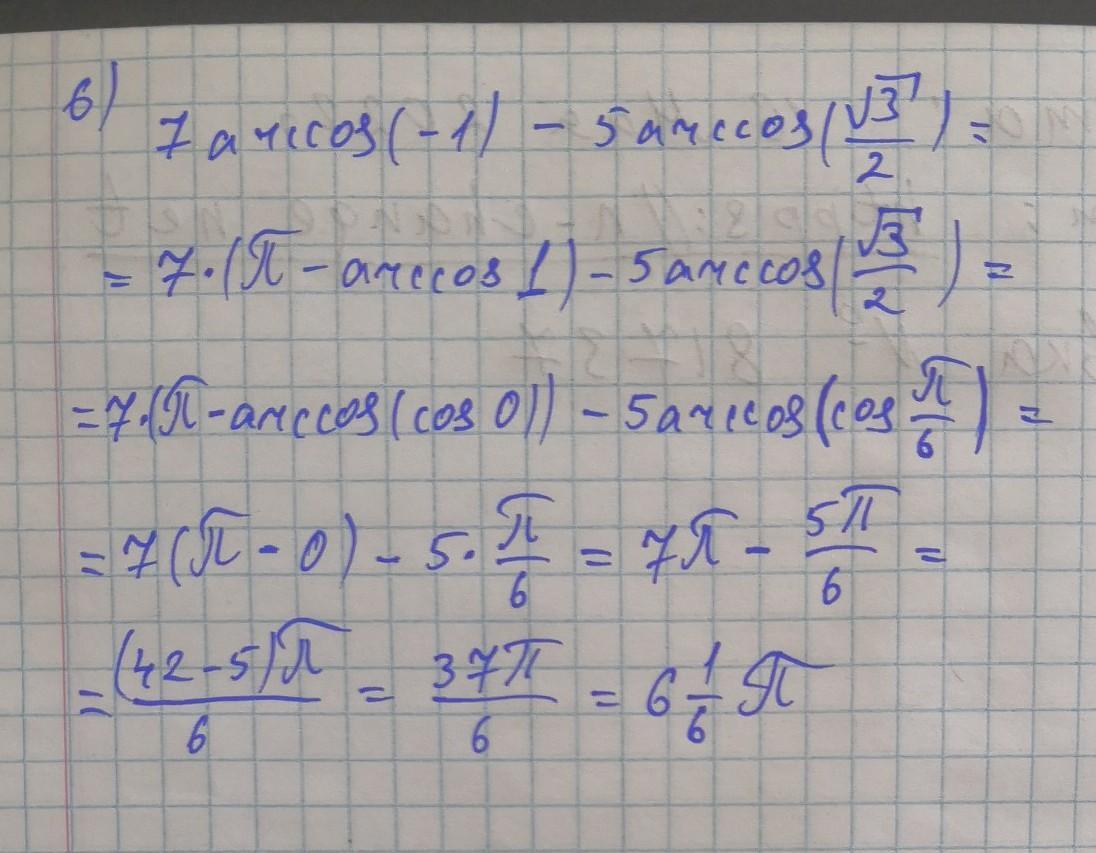 б) 7 arccos(-1) - 5 arccos(√3/2) =
= 7·(π - arccos 1) - 5 arccos(√3/2) =
= 7·(π - arccos(cos 0)) - 5 arccos(cos π/6) =
= 7(π - 0) - 5·π/6 = 7π - 5π/6 =
= (42-5)π/6 = 37π/6 = 6 1/6 π